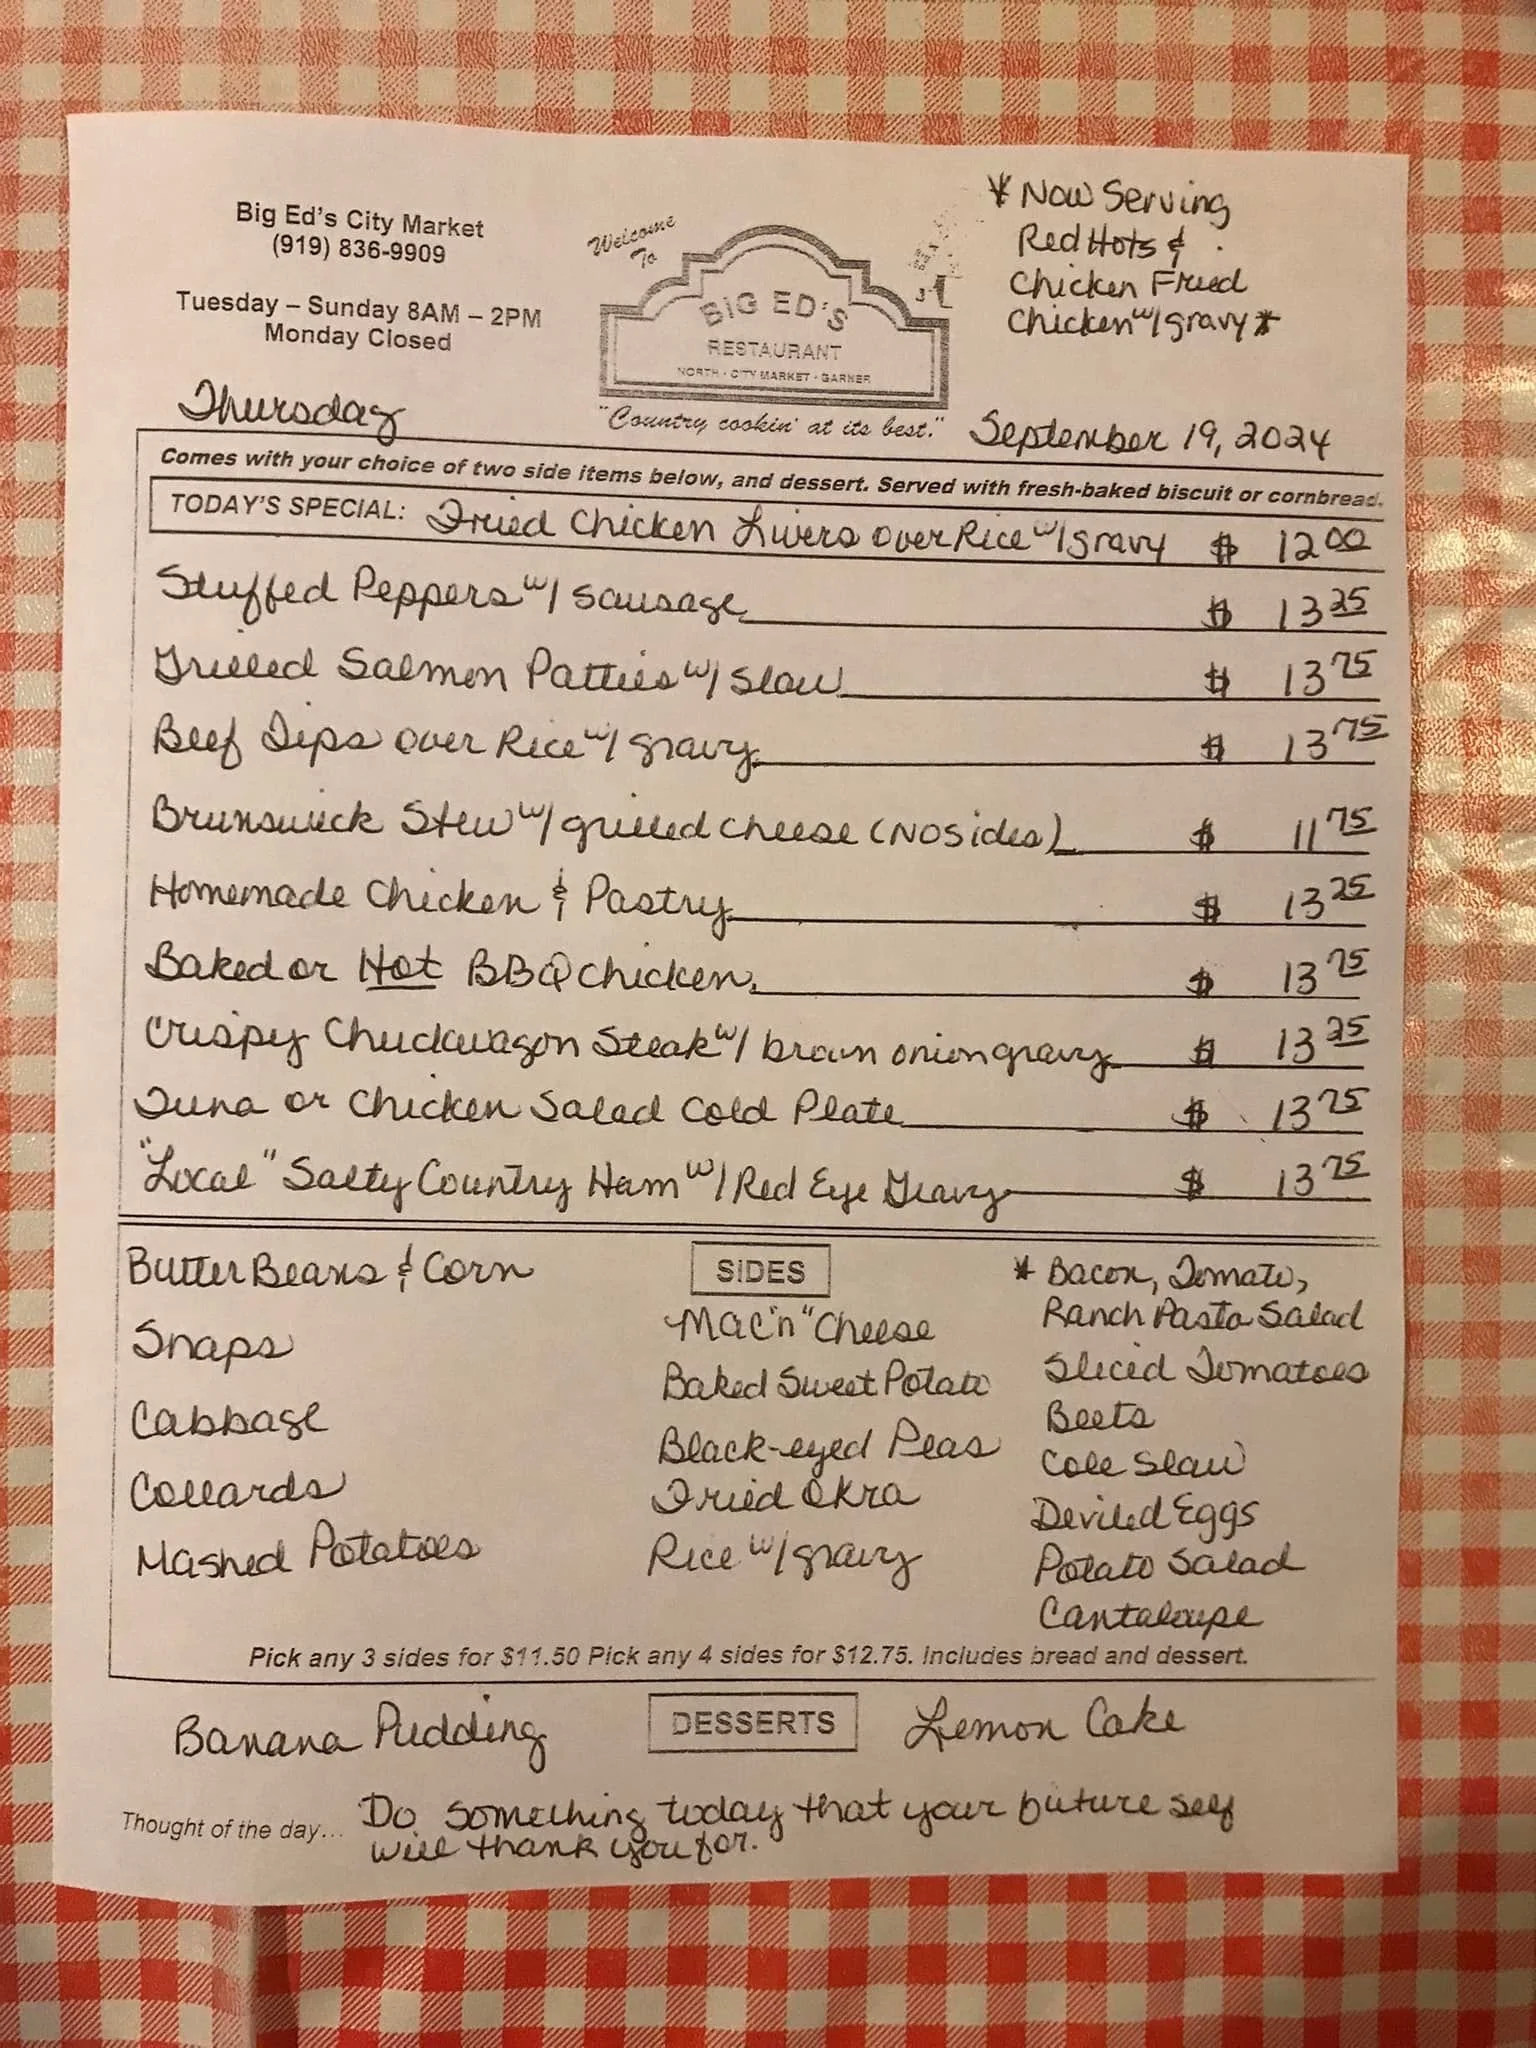 Big Ed's City Market
(919) 836-9909
Tuesday – Sunday 8AM – 2PM
Monday Closed
Welcome
To
BIG ED'S
RESTAURANT
NORTH · CITY MARKET · GARNER
"Country cookin' at its best."
* Now Serving
Red Hots &
Chicken Fried
Chicken w/ gravy *
Thursday
September 19, 2024
Comes with your choice of two side items below, and dessert. Served with fresh-baked biscuit or cornbread.
TODAY'S SPECIAL: Fried Chicken Livers over Rice w/ gravy $ 12.00
Stuffed Peppers w/ sausage $ 13 25
Grilled Salmon Patties w/ slaw $ 13 75
Beef Tips over Rice w/ gravy $ 13 75
Brunswick Stew w/ grilled cheese (No sides) $ 11 75
Homemade Chicken & Pastry $ 13 25
Baked or Hot BBQ chicken $ 13 75
Crispy Chuckwagon Steak w/ brown onion gravy $ 13 25
Tuna or Chicken Salad Cold Plate $ 13 75
"Local" Salty Country Ham w/ Red Eye Gravy $ 13 75
SIDES
Butter Beans & Corn
Snaps
Cabbage
Collards
Mashed Potatoes
Mac "n" Cheese
Baked Sweet Potato
Black-eyed Peas
Fried Okra
Rice w/ gravy
* Bacon, Tomato,
Ranch Pasta Salad
Sliced Tomatoes
Beets
Cole Slaw
Deviled Eggs
Potato Salad
Cantaloupe
Pick any 3 sides for $11.50 Pick any 4 sides for $12.75. Includes bread and dessert.
Banana Pudding DESSERTS Lemon Cake
Thought of the day... Do something today that your future self
will thank you for.